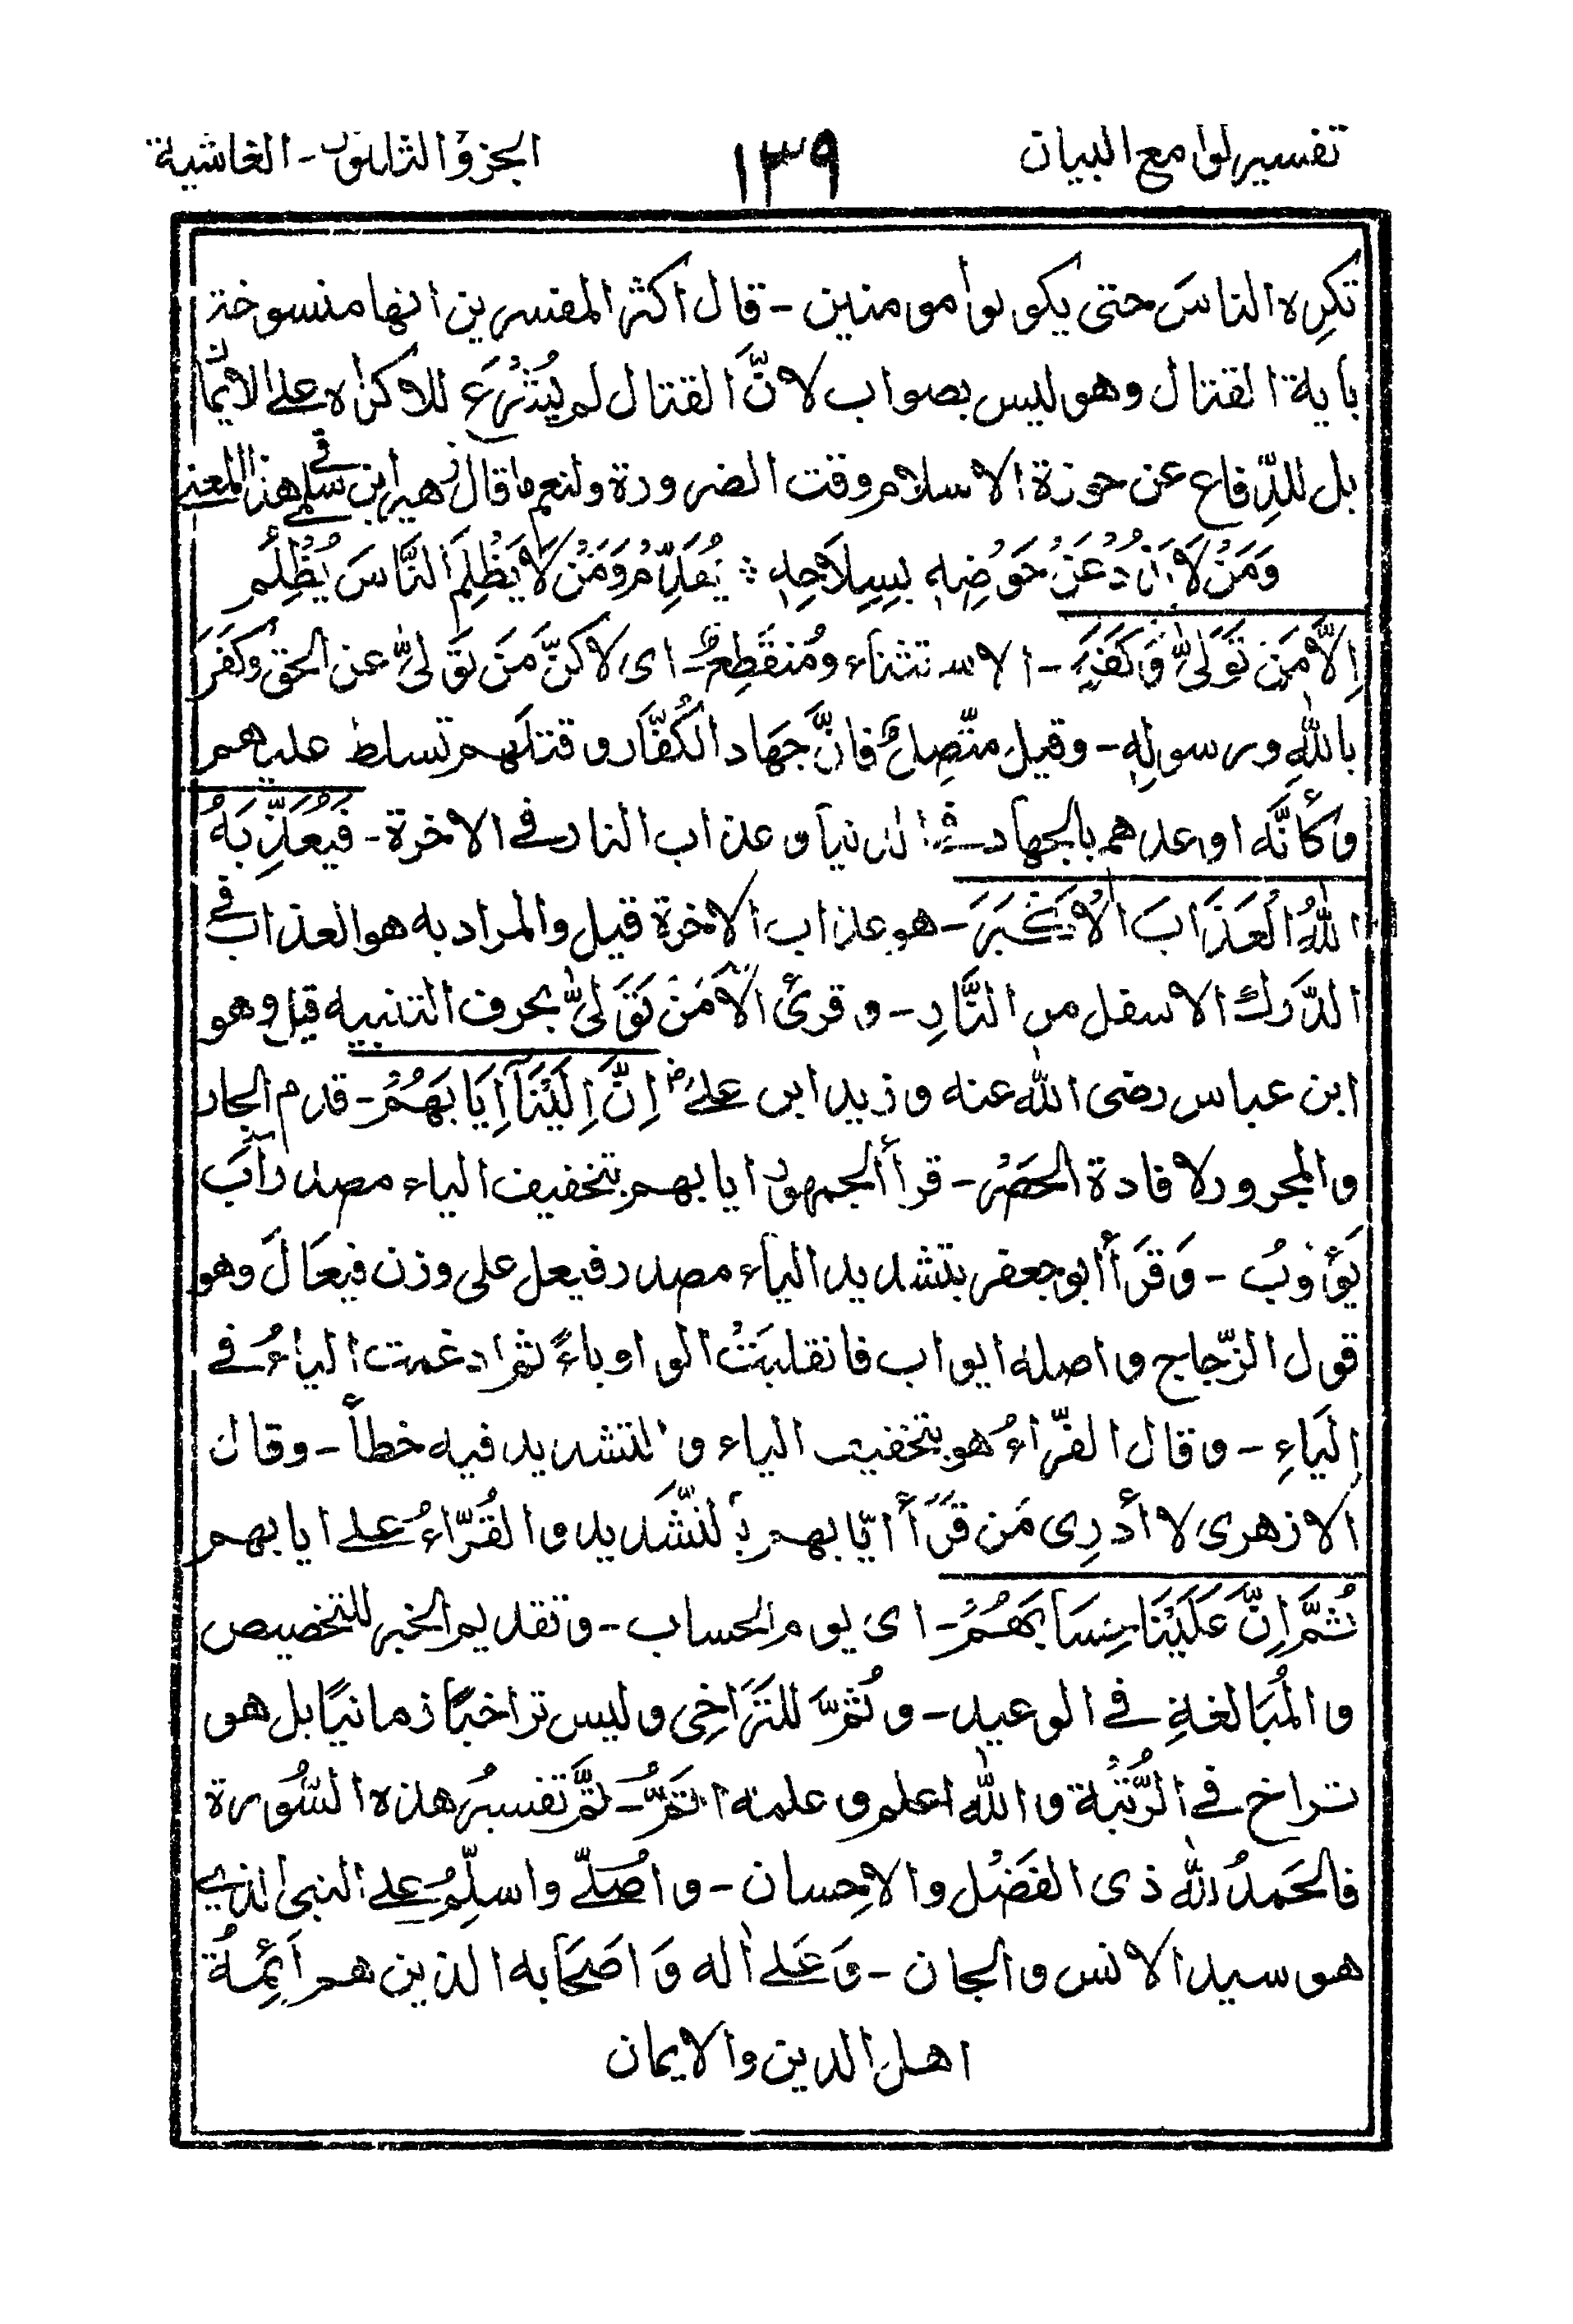 تفسير لوامع البيان ١٣٩ الجزؤ الثلاثون - الغاشية
تكرِه الناسَ حتى يكونوا مومنين - قال اكثر المفسرين انها منسوخة
باية القتال وهو ليس بصواب لانَّ القتال لم يُشْرَع للاكراه على الايمان
بل للدِّفاع عن حوزة الاسلام وقت الضرورة ولنعم ما قال زهير ابن سلمى في هذا المعنى
وَمَنْ لَا يَذُدْ عَنْ حَوْضِهٖ بِسِلَاحِهٖ ؞ يُهَدَّمْ وَمَنْ لَا يَظْلِمِ النَّاسَ يُظْلَمِ
اِلَّا مَنْ تَوَلّٰى وَكَفَرَ - الاستثناء ومُنقَطِعٌ - اى لاكنَّ مَن تَوَلىّٰ عن الحق وَكَفَرَ
باللّٰهِ ورسولِهٖ - وقيل متّصِلٌ فانَّ جِهَاد الكُفّار وقتلَهم تسلط عليهم
وكأنَّه اوعدهم بالجهاد فى الدنيا وعذاب النار فى الاخرة - فَيُعَذِّبُهُ
اللّٰهُ الْعَذَابَ الْاَكْبَرَ - هو عذاب الاخرة قيل والمراد به هو العذاب فى
الدَّرك الاسفل من النَّارِ - وقرئ الَا مَنْ تَوَلىّٰ بحرف التنبيه قيل وهو
ابن عباس رضى اللّٰه عنه وزيد ابن علىؓ اِنَّ اِلَيْنَآ اِيَابَهُمْ - قدم الجار
والمجرور لافادة الحَصْر - قرأ الجمهور ايابهم بتخفيف الياء مصدر اٰبَ
يَؤُوبُ - وَقَرَأ أبوجعفر بتشديد الياء مصدر فيعل على وزن فيعَالَ وهو
قول الزّجاج واصله ايواب فانقلبَتْ الواو ياءً ثم ادغمت الياءُ فى
الَياءِ - وقال الفرّاءُ هو بتخفيف الياء والتشديد فيه خطأ - وقال
الازهرى لا أدرِى مَن قَرَأ ايّابهم بالتَّشديد والقُرّاءُ على ايابهم
ثُمَّ اِنَّ عَلَيْنَا حِسَابَهُمْ - اى يوم الحساب - وتقديم الخبر للتخصيص
والمُبَالغةِ فى الوعيد - وثُمَّ للتَرَاخِى وليس تراخيًا زمانيًا بل هو
تراخ فى الرُّتْبة واللّٰه اعلم وعلمه اتَمُّ - تمَّ تفسيرُ هذه السُّورة
فالحَمدُ للّٰه ذى الفَضْل والاحِسان - واُصَلّى واسلِّمُ على النبى الذى
هو سيد الانس والجان - وَعَلى اٰله وَاصَحَابه الذين هم اَئِمةُ
اهل الدين والايمان